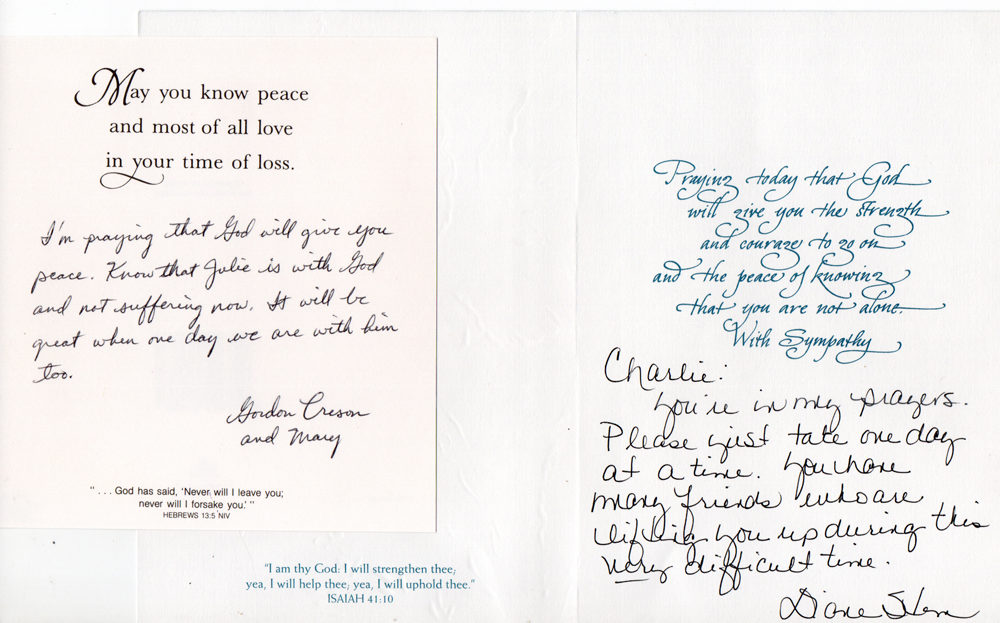 May you know peace
and most of all love
in your time of loss.
I'm praying that God will give you
peace. Know that Julie is with God
and not suffering now. It will be
great when one day we are with him
too.
Gordon Creson
and Mary
" . . . God has said, 'Never will I leave you;
never will I forsake you.' "
HEBREWS 13:5 NIV
"I am thy God: I will strengthen thee;
yea, I will help thee; yea, I will uphold thee."
ISAIAH 41:10
Praying today that God
will give you the strength
and courage to go on
and the peace of knowing
that you are not alone.
With Sympathy
Charlie:
You're in my prayers.
Please just take one day
at a time. You have
many friends who are
lifting you up during this
very difficult time.
Diane